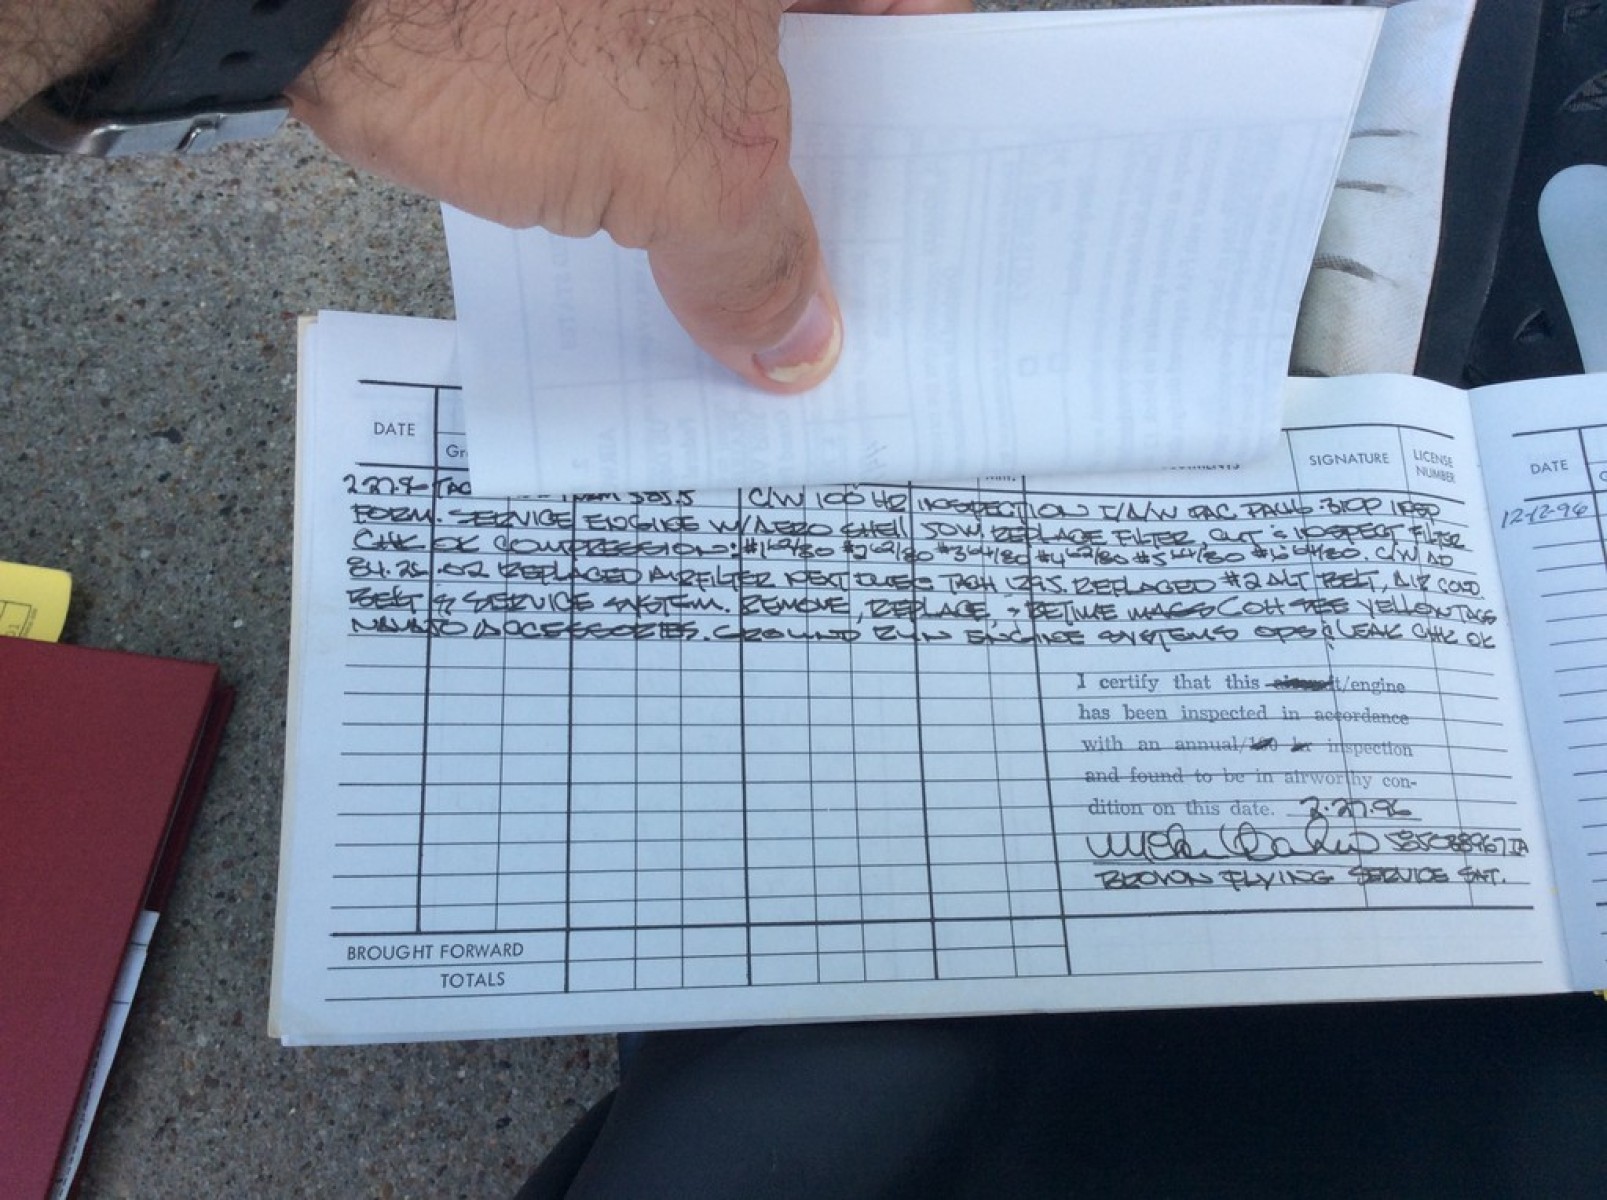 DATE
SIGNATURE
LICENSE NUMBER
DATE
2.27.96 585.5 C/W 100 HR INSPECTION I/A/W INSP
12-12-96
FORM. SERVICE ENGINE W/AERO SHELL 50W, REPLACE FILTER, CUT & INSPECT FILTER
CHK OK COMPRESSION: #1 62/80 #2 62/80 #3 64/80 #4 62/80 #5 64/80 #6 64/80. C/W AD
84.26.02 REPLACED AIRFILTER NEXT DUE: TACH 1295. REPLACED #2 ALT BELT, AIR COND
BELT & SERVICE SYSTEM. REMOVE, REPLACE, & RETIME MAGS COH SEE YELLOW TAGS
NAVAJO ACCESSORIES. GROUND RUN ENGINE SYSTEMS OPS & LEAK CHK OK
I certify that this /engine
has been inspected in accordance
with an annual/100 hr inspection
and found to be in airworthy con-
dition on this date. 2.27.96
585088967 IA
BROWN FLYING SERVICE SAT.
BROUGHT FORWARD
TOTALS